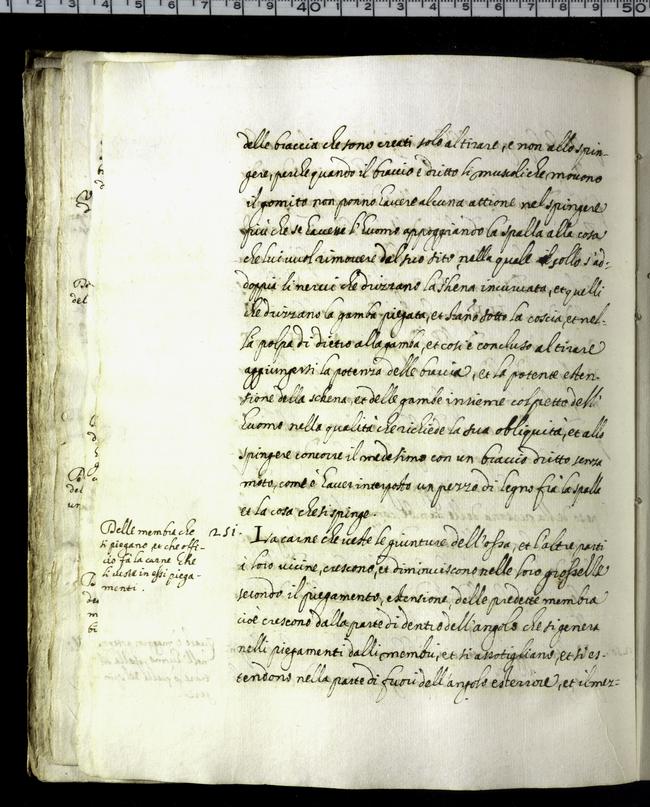 delle braccia che sono creati solo al tirare, e non allo spin-
gere, perche quando il braccio è dritto li musculi che movono
il gomito non ponno havere alcuna attione nel spingere
più che se havesse l'huomo appoggiando la spalla alla cosa
che lui vuol rimovere dal suo sito, nella quale il collo s'ad-
doppia li nervi che drizzano la schena incurvata, et quelli
che drizzano la gamba piegata, et stano sotto la coscia, et nel-
la polpa di dietro alla gamba, et cosi è concluso al tirare
aggiungervi la potenza delle braccia, et la potente esten-
sione della schena, et delle gambe insieme col petto dell'
huomo nella qualità che richiede la sua obliquità, et allo
spingere concorre il medesimo con un braccio dritto senza
moto, come è haver interposto un pezzo di legno fra la spalla
et la cosa che si spinge.
Delle membra che
si piegano, et che offi-
cio fa la carne che
si veste in essi piega-
menti.
251. La carne che veste le giunture dell'ossa, et l'altre parti
à loro vicine, crescono, et diminuiscono nelle loro grosselle
secondo il piegamento, estensione, delle predette membra
cioè crescono dalla parte di dentro dell'angolo che si genera
nelli piegamenti dalli membri, et si assotigliano, et si es-
tendono nella parte di fuori dell'angolo esteriore, et il mez-